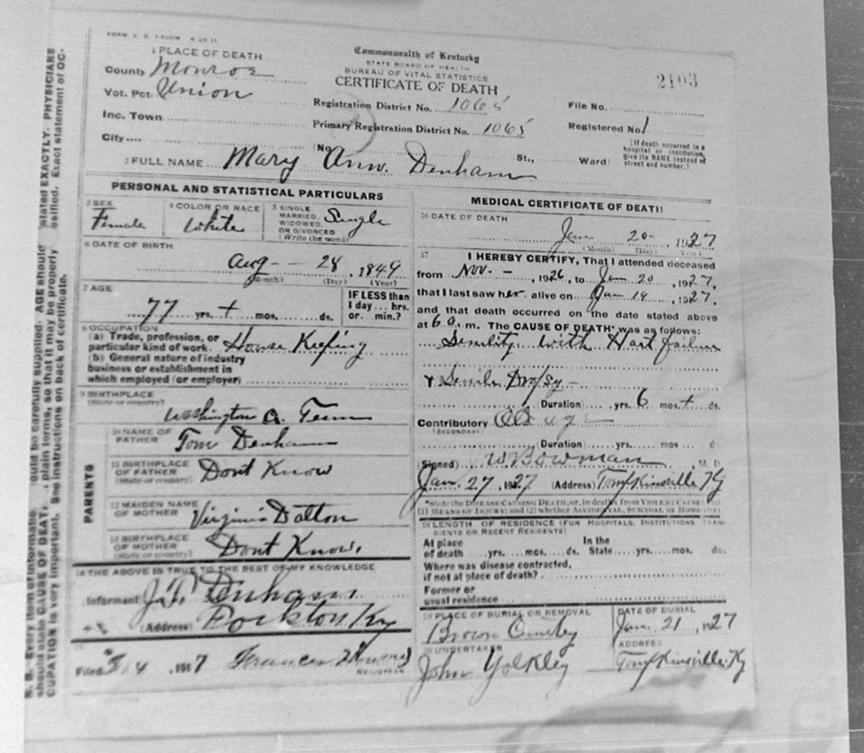 1 PLACE OF DEATH
County Monroe
Vot. Pct. Union
Inc. Town
City
Commonwealth of Kentucky
STATE BOARD OF HEALTH
BUREAU OF VITAL STATISTICS
CERTIFICATE OF DEATH
2193
Registration District No. 1065
File No.
Primary Registration District No. 1065
Registered No. 1
(No. St., Ward)
(If death occurred in a hospital or institution, give its NAME instead of street and number.)
2 FULL NAME Mary Ann. Denham
PERSONAL AND STATISTICAL PARTICULARS
3 SEX
Female
4 COLOR OR RACE
White
5 SINGLE MARRIED, WIDOWED, OR DIVORCED (Write the word)
Single
6 DATE OF BIRTH
Aug 28, 1849
(Month) (Day) (Year)
7 AGE
77 yrs. + mos. ds.
IF LESS than 1 day... hrs. or... min.?
8 OCCUPATION
(a) Trade, profession, or particular kind of work. House Keeping
(b) General nature of industry
business or establishment in
which employed (or employer)
9 BIRTHPLACE
(State or country)
Washington Co. Tenn
PARENTS
10 NAME OF FATHER
Tom Denham
11 BIRTHPLACE OF FATHER
(State or country)
Dont Know
12 MAIDEN NAME OF MOTHER
Virginia Dalton
13 BIRTHPLACE OF MOTHER
(State or country)
Dont Know.
14 THE ABOVE IS TRUE TO THE BEST OF MY KNOWLEDGE
Informant Denham
(Address) Ky
15
Filed
REGISTRAR
MEDICAL CERTIFICATE OF DEATH
16 DATE OF DEATH
Jan 20, 1927
(Month) (Day) (Year)
17 I HEREBY CERTIFY, That I attended deceased
from Nov. - , 1926, to Jan 20, 1927,
that I last saw her alive on Jan 19, 1927,
and that death occurred on the date stated above
at 6 a. m. The CAUSE OF DEATH was as follows:
Senility with Hart failure
+ Senile Dropsy -
Duration yrs. 6 mos. + ds.
Contributory Old age
(SECONDARY)
Duration yrs. mos. ds.
(Signed) W Bowman M. D.
Jan. 27, 1927 (Address) Tompkinsville, Ky
*State the DISEASE CAUSING DEATH, or, in deaths from VIOLENT CAUSES
(1) MEANS OF INJURY; and (2) whether ACCIDENTAL, SUICIDAL OR HOMICIDAL
18 LENGTH OF RESIDENCE (FOR HOSPITALS, INSTITUTIONS, TRANSIENTS OR RECENT RESIDENTS)
At place of death yrs. mos. ds. In the State yrs. mos. ds.
Where was disease contracted,
if not at place of death?
Former or
usual residence
19 PLACE OF BURIAL OR REMOVAL
Brown
DATE OF BURIAL
Jan. 21, 1927
20 UNDERTAKER
John Yokley
ADDRESS
Tompkinsville, Ky